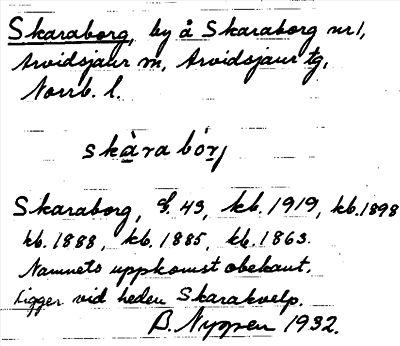 Skaraborg, by å Skaraborg nr 1,
Arvidsjaur sn, Arvidsjaur tg,
Norrb. l.
skàrabórj
Skaraborg, G. 43, kb. 1919, kb. 1898
kb. 1888, kb. 1885, kb. 1863.
Namnets uppkomst obekant.
Ligger vid heden Skarakvelp.
B. Nygren 1932.